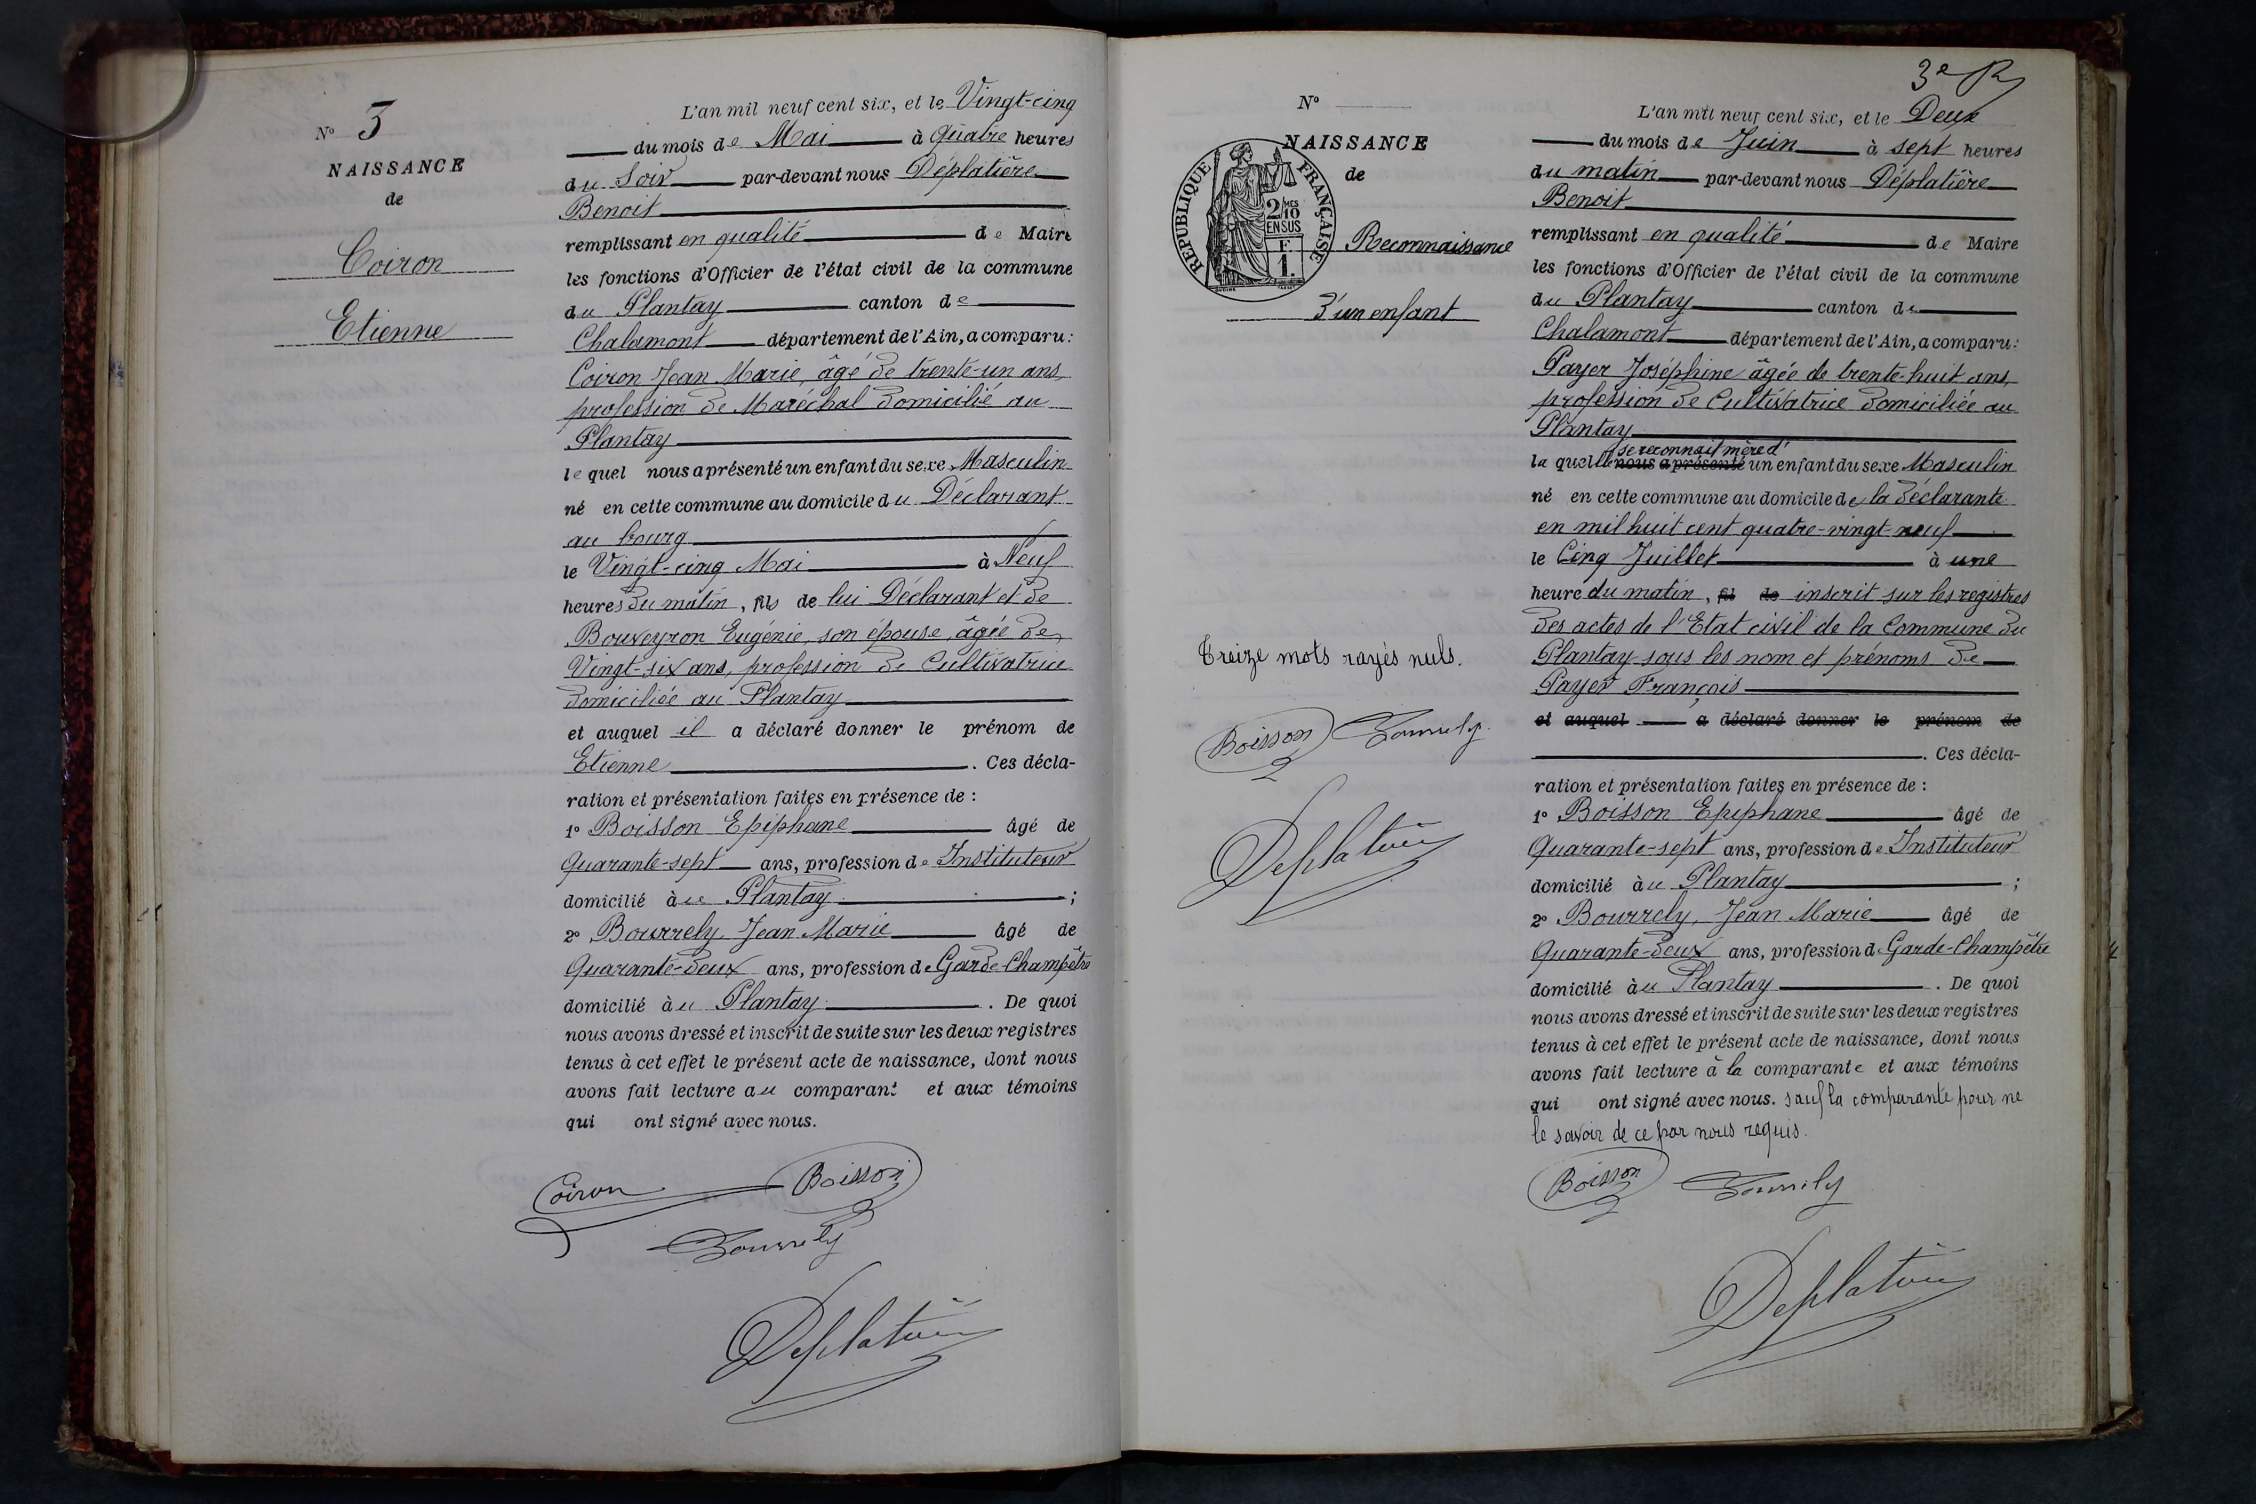 N° 3
NAISSANCE
de
Coiron
Etienne
L'an mil neuf cent six, et le Vingt-cinq
du mois de Mai à Quatre heures
du Soir par-devant nous Déplatière
Benoit
remplissant en qualité de Maire
les fonctions d'Officier de l'état civil de la commune
du Plantay canton de
Chalamont département de l'Ain, a comparu :
Coiron Jean Marie, âgé de trente-un ans,
profession de Maréchal domicilié au
Plantay
lequel nous a présenté un enfant du sexe Masculin
né en cette commune au domicile du Déclarant
au bourg
le Vingt-cinq Mai à Neuf
heures du matin, fils de lui Déclarant et de
Bouveyron Eugénie, son épouse, âgée de
Vingt-six ans, profession de Cultivatrice
domiciliée au Plantay
et auquel il a déclaré donner le prénom de
Etienne . Ces décla-
ration et présentation faites en présence de :
1° Boisson Epiphane âgé de
Quarante-sept ans, profession de Instituteur
domicilié au Plantay ;
2° Bourrely Jean Marie âgé de
Quarante-deux ans, profession de Garde-Champêtre
domicilié au Plantay . De quoi
nous avons dressé et inscrit de suite sur les deux registres
tenus à cet effet le présent acte de naissance, dont nous
avons fait lecture au comparant et aux témoins
qui ont signé avec nous.
Coiron Boisson
Bourrely
Deplatière
3e R
N°
NAISSANCE
de
REPUBLIQUE FRANÇAISE
2/10 MES
EN SUS
F.
1.
Reconnaissance
d'un enfant
L'an mil neuf cent six, et le Deux
du mois de Juin à sept heures
du matin par-devant nous Déplatière
Benoit
remplissant en qualité de Maire
les fonctions d'Officier de l'état civil de la commune
du Plantay canton de
Chalamont département de l'Ain, a comparu :
Payer Joséphine âgée de trente-huit ans,
profession de Cultivatrice domiciliée au
Plantay
se reconnait mère d'
laquelle nous a présenté un enfant du sexe Masculin
né en cette commune au domicile de la déclarante
en mil huit cent quatre-vingt-neuf
le Cinq Juillet à une
heure du matin, fil de inscrit sur les registres
des actes de l'Etat civil de la Commune du
Plantay sous les nom et prénoms de
Payer François
et auquel a déclaré donner le prénom de
. Ces décla-
ration et présentation faites en présence de :
1° Boisson Epiphane âgé de
Quarante-sept ans, profession de Instituteur
domicilié au Plantay ;
2° Bourrely, Jean Marie âgé de
Quarante-deux ans, profession de Garde-Champêtre
domicilié au Plantay . De quoi
nous avons dressé et inscrit de suite sur les deux registres
tenus à cet effet le présent acte de naissance, dont nous
avons fait lecture à la comparante et aux témoins
qui ont signé avec nous. sauf la comparante pour ne
le savoir de ce par nous requis.
Boisson Bourrely
Deplatière
Treize mots rayés nuls.
Boisson Bourrely
Deplatière